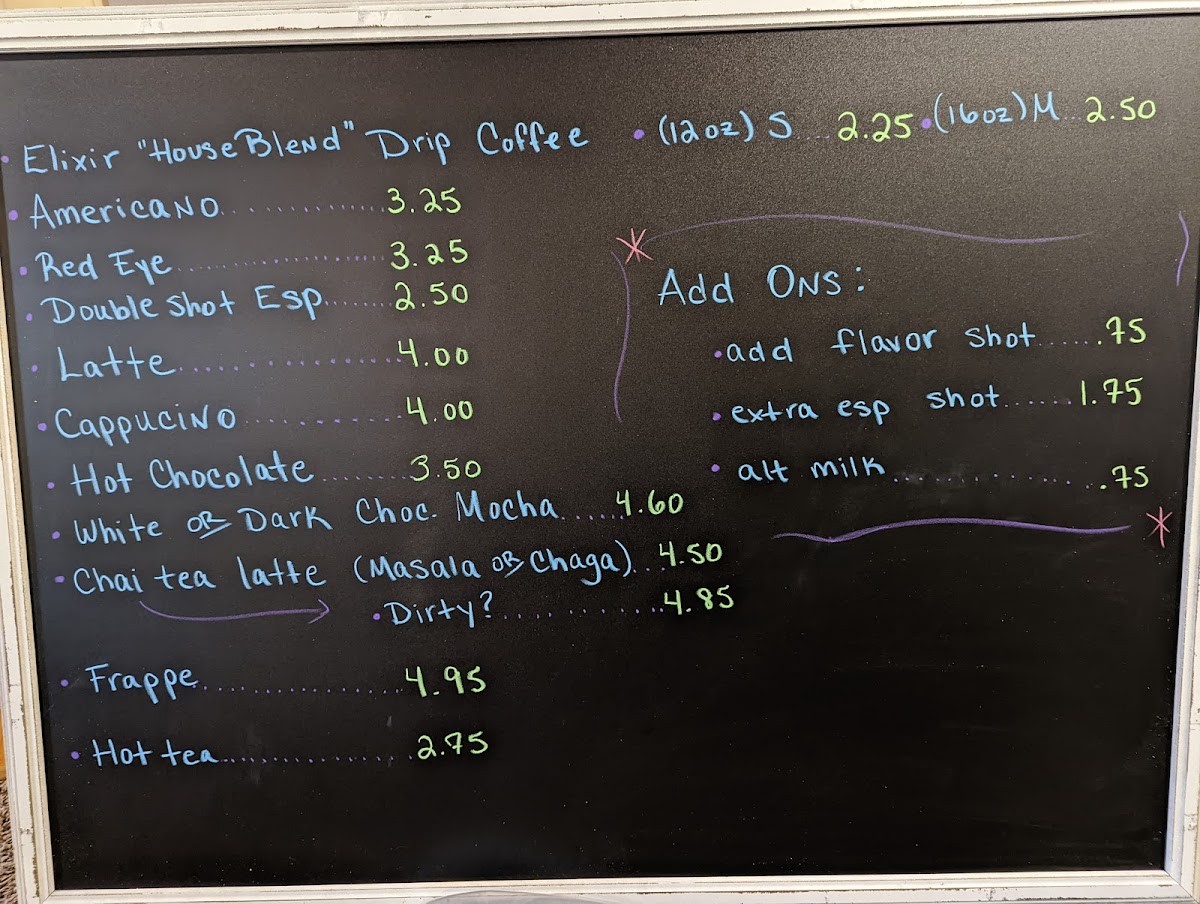 • Elixir "House Blend" Drip Coffee • (12oz) S.... 2.25 • (16oz) M... 2.50
• Americano............... 3.25
• Red Eye..................... 3.25
• Double Shot Esp....... 2.50
• Latte........................ 4.00
• Cappucino................ 4.00
• Hot Chocolate......... 3.50
• White or Dark Choc. Mocha...... 4.60
• Chai tea latte (Masala or Chaga)... 4.50
• Dirty?............... 4.85
• Frappe..................... 4.95
• Hot tea..................... 2.75
* Add Ons:
• add flavor shot...... .75
• extra esp shot...... 1.75
• alt milk................ .75 *